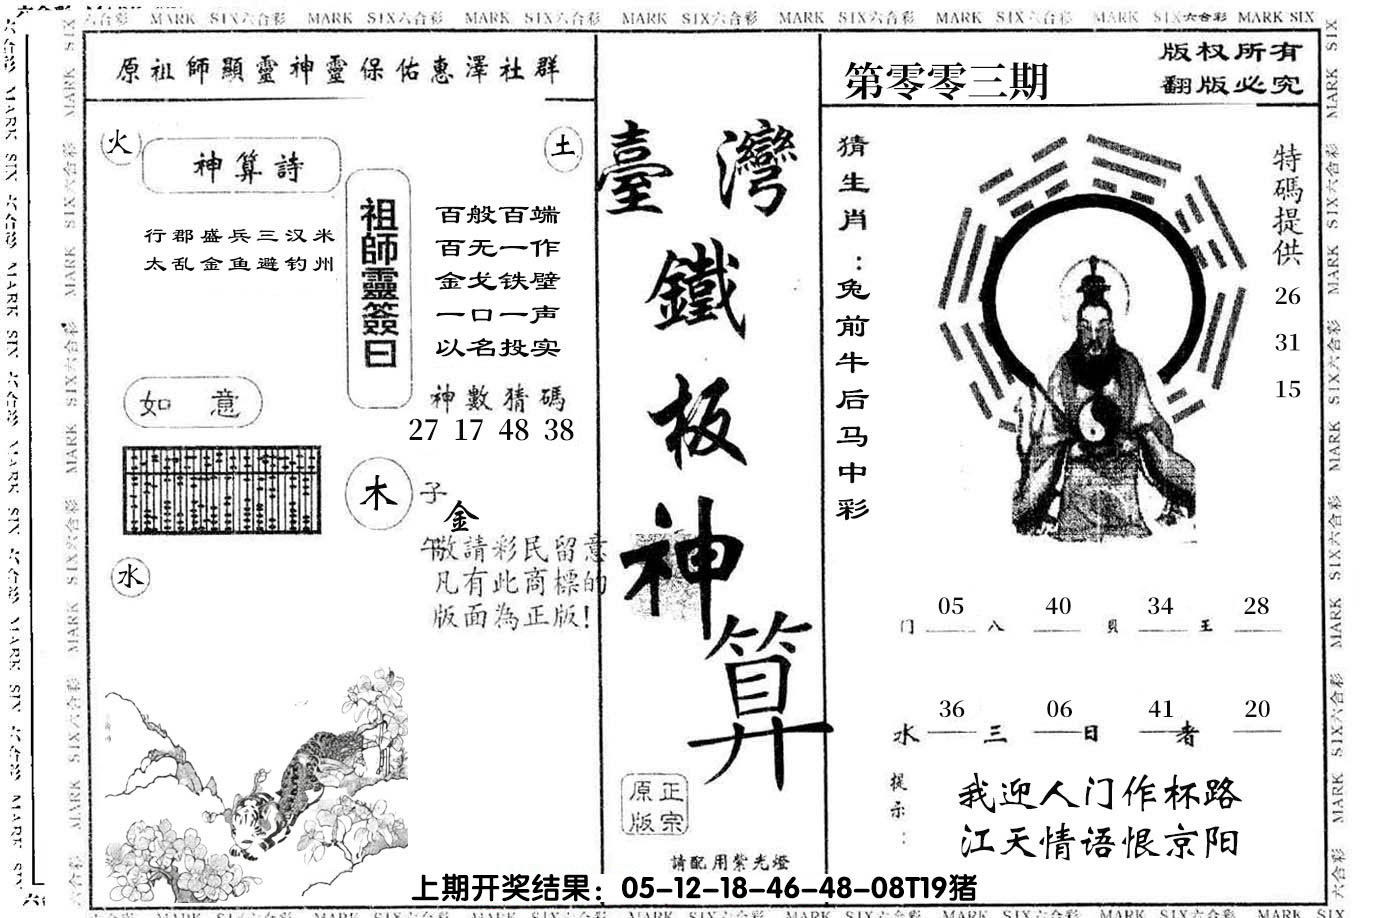 原祖師顯靈神靈保佑惠澤社群
火
神算詩
土
行郡盛兵三汉米
太乱金鱼避钓州
祖師靈簽曰
百般百端
百无一作
金戈铁壁
一口一声
以名投实
神數猜碼
27 17 48 38
如意
木
子
金
午
敬請彩民留意
凡有此商標的
版面為正版!
水
臺灣
鐵
板
神
算
正宗
原版
請配用紫光燈
第零零三期
版权所有
翻版必究
猜生肖:兔前牛后马中彩
特碼提供
26
31
15
05 40 34 28
门 八 贝 王
36 06 41 20
水 三 日 者
提示:
我迎人门作杯路
江天情语恨京阳
上期开奖结果：05-12-18-46-48-08T19猪
MARK SIX六合彩 MARK SIX六合彩 MARK SIX六合彩 MARK SIX六合彩 MARK SIX六合彩 MARK SIX六合彩 MARK SIX六合彩 MARK SIX